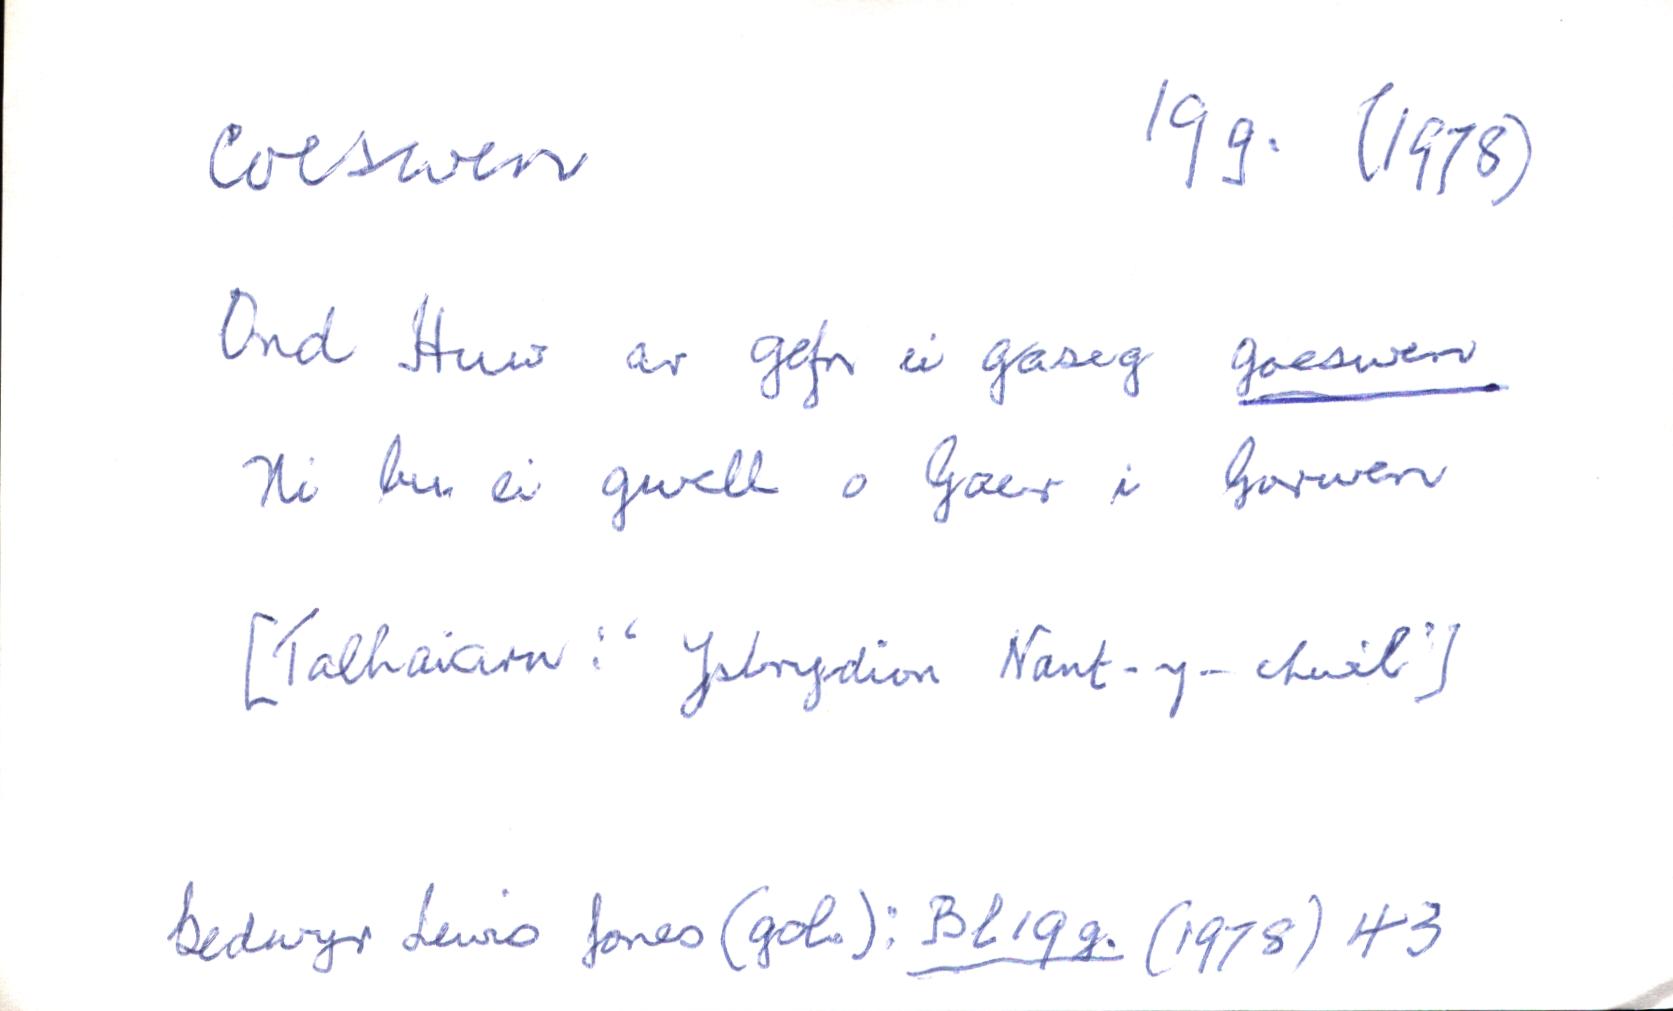 Coeswen 19g. (1978)
Ond Huw ar gefn ei gaseg goeswen
Ni bu ei gwell o Gaer i Gorwen
[Talhaiarn: "Ysbrydion Nant-y-chwil"]
Bedwyr Lewis Jones (gol.): Bl19g. (1978) 43